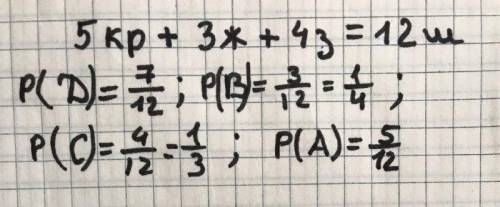 5 кр + 3ж + 4з = 12 ш
P(D) = 7/12 ; P(B) = 3/12 = 1/4 ;
P(C) = 4/12 = 1/3 ; P(A) = 5/12